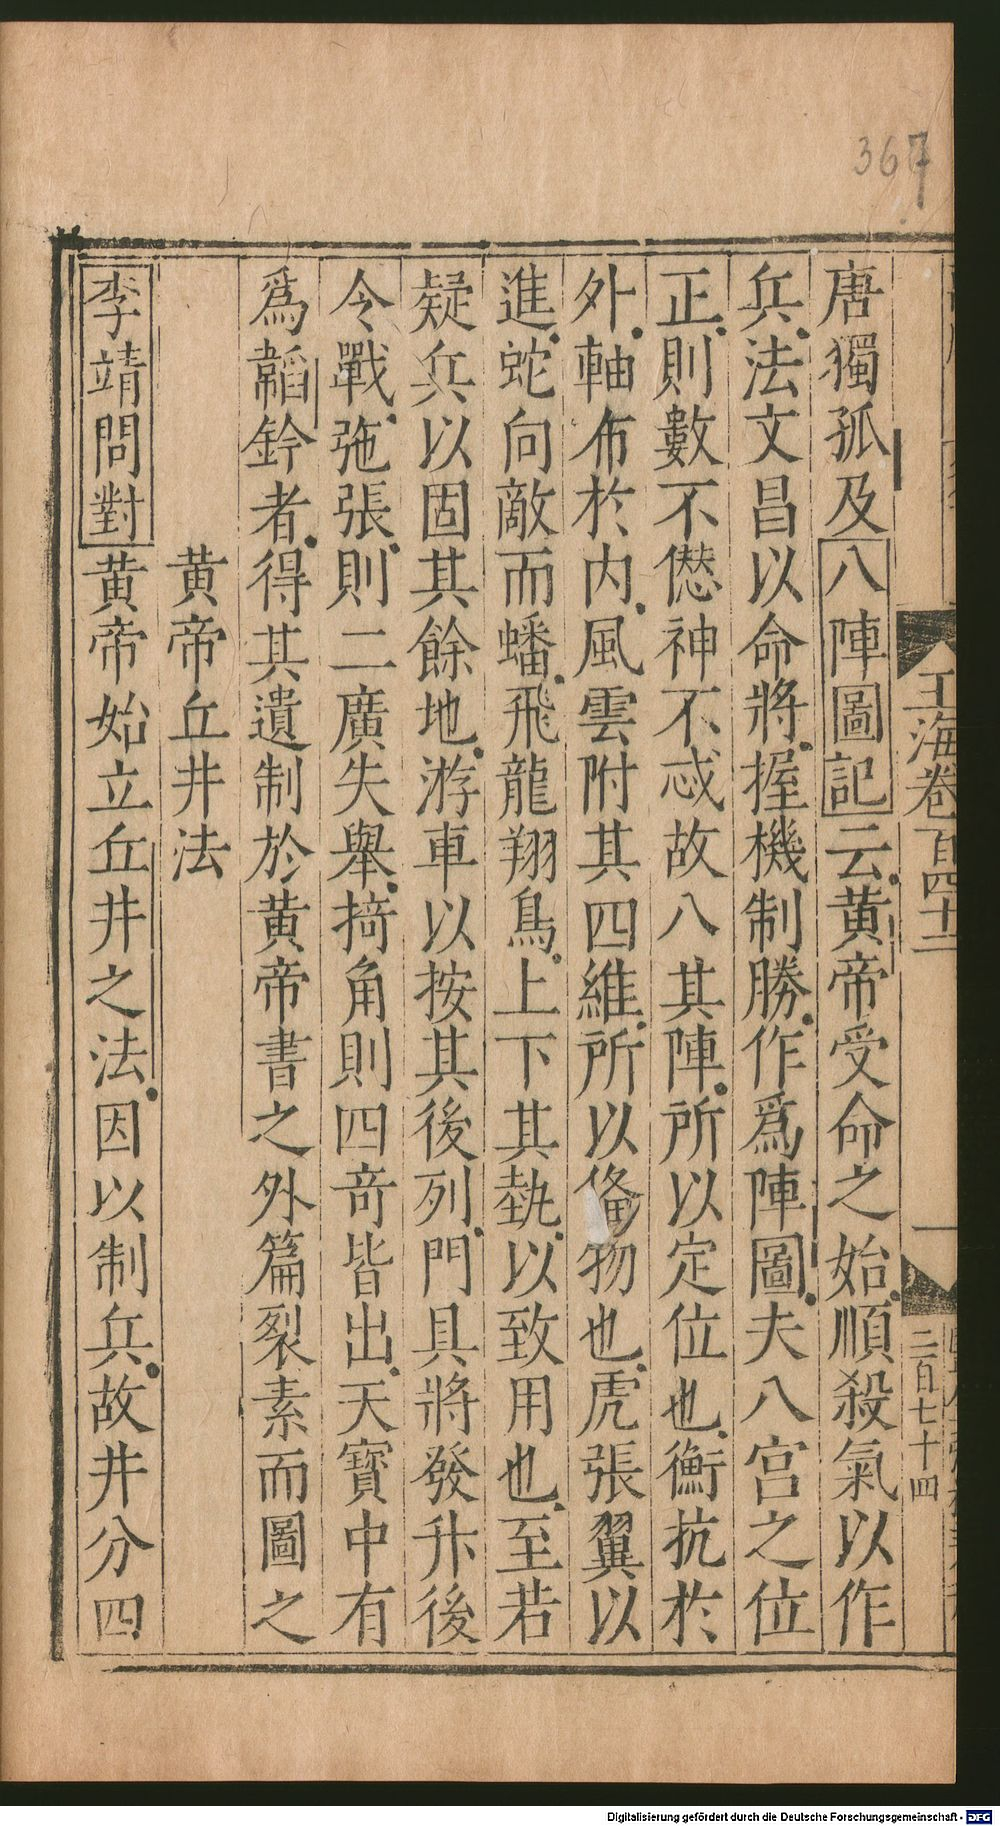 367
玉海卷百四十二
二百七十四
唐獨孤及八陣圖記云黄帝受命之始順殺氣以作
兵法文昌以命將握機制勝作爲陣圖夫八宫之位
正則數不僣神不忒故八其陣所以定位也衡抗於
外軸布於内風雲附其四維所以俻物也虎張翼以
進蛇向敵而蟠飛龍翔鳥上下其埶以致用也至若
疑兵以固其餘地游車以按其後列門具將發升後
令戰弛張則二廣失舉掎角則四奇皆出天寳中有
爲韜鈐者得其遺制於黄帝書之外篇裂素而圖之
黄帝丘井法
李靖問對黄帝始立丘井之法因以制兵故井分四
Digitalisierung gefördert durch die Deutsche Forschungsgemeinschaft - DFG